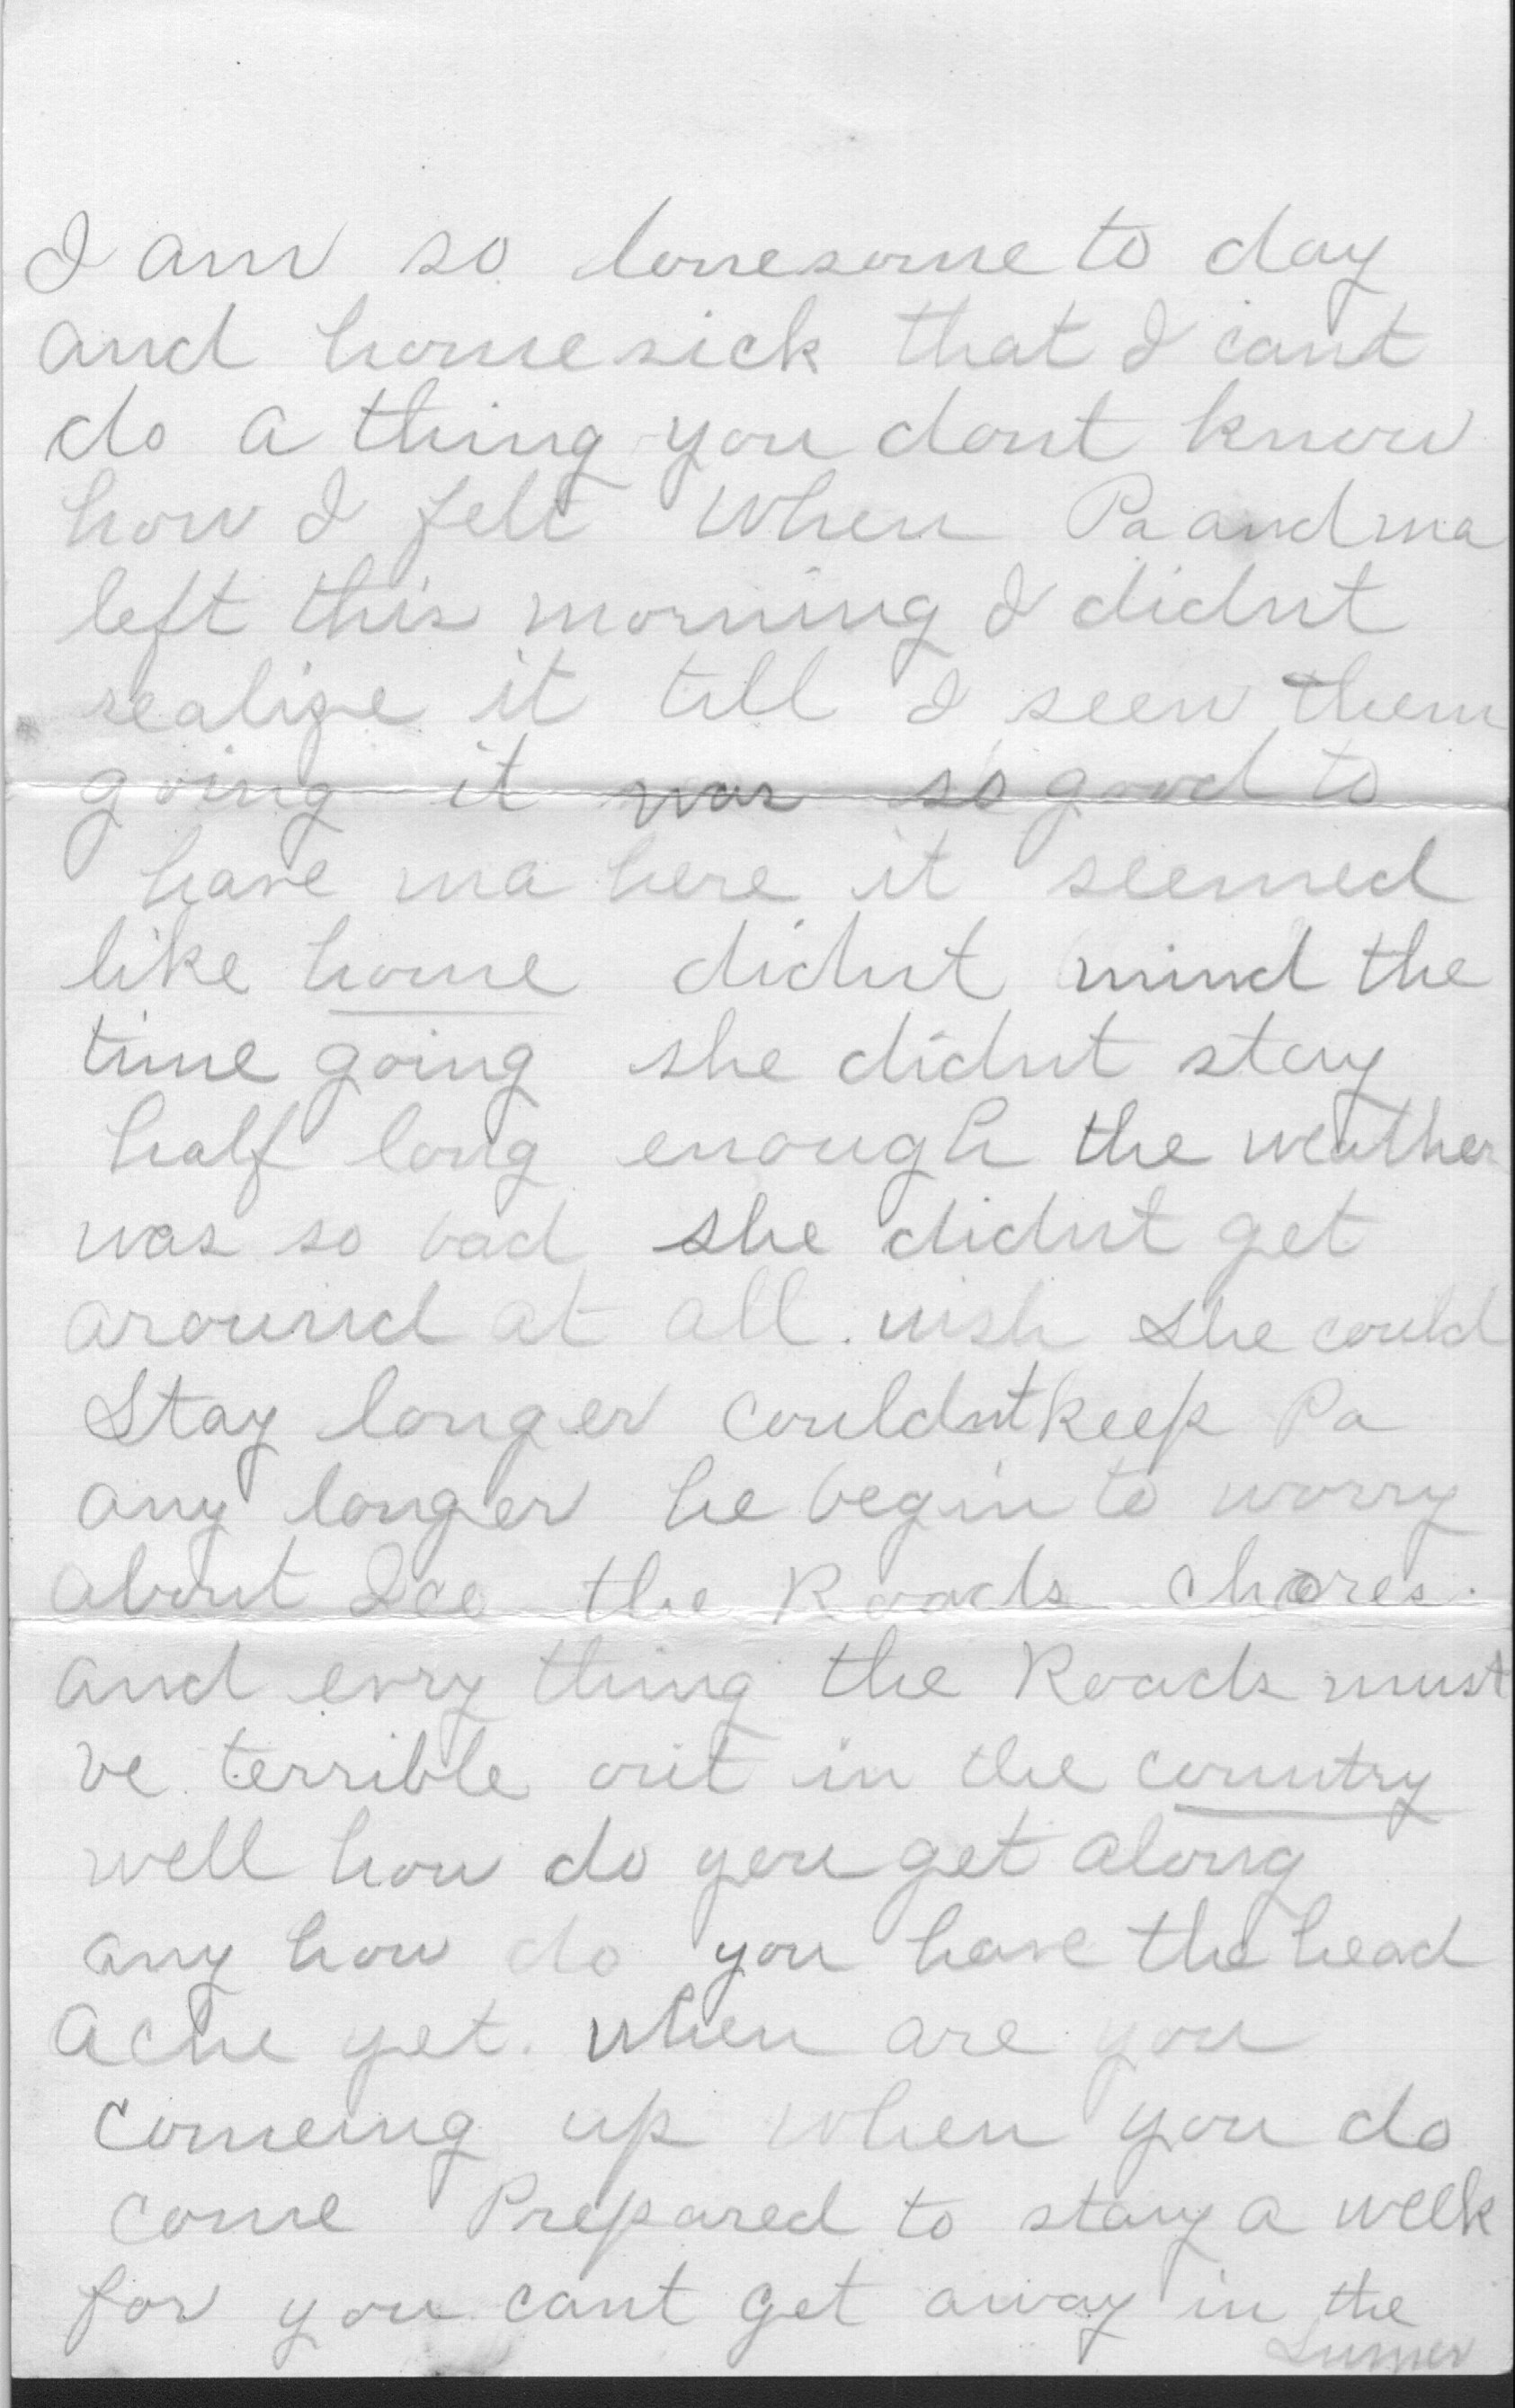 I am so lonesome to day
and home sick that I cant
do a thing you dont know
how I felt when Pa and ma
left this morning I didnt
realize it till I seen them
going it was so good to
have ma here it seemed
like home didnt mind the
time going she didnt stay
half long enough the weather
was so bad she didnt get
around at all. wish she could
Stay longer couldnt keep Pa
any longer he begin to worry
about Ice the Roads chores.
and evry thing the Roads must
be terrible out in the country
well how do you get along
any how do you have the head
ache yet. when are you
comeing up when you do
come Prepared to stay a week
for you cant get away in the
Summer